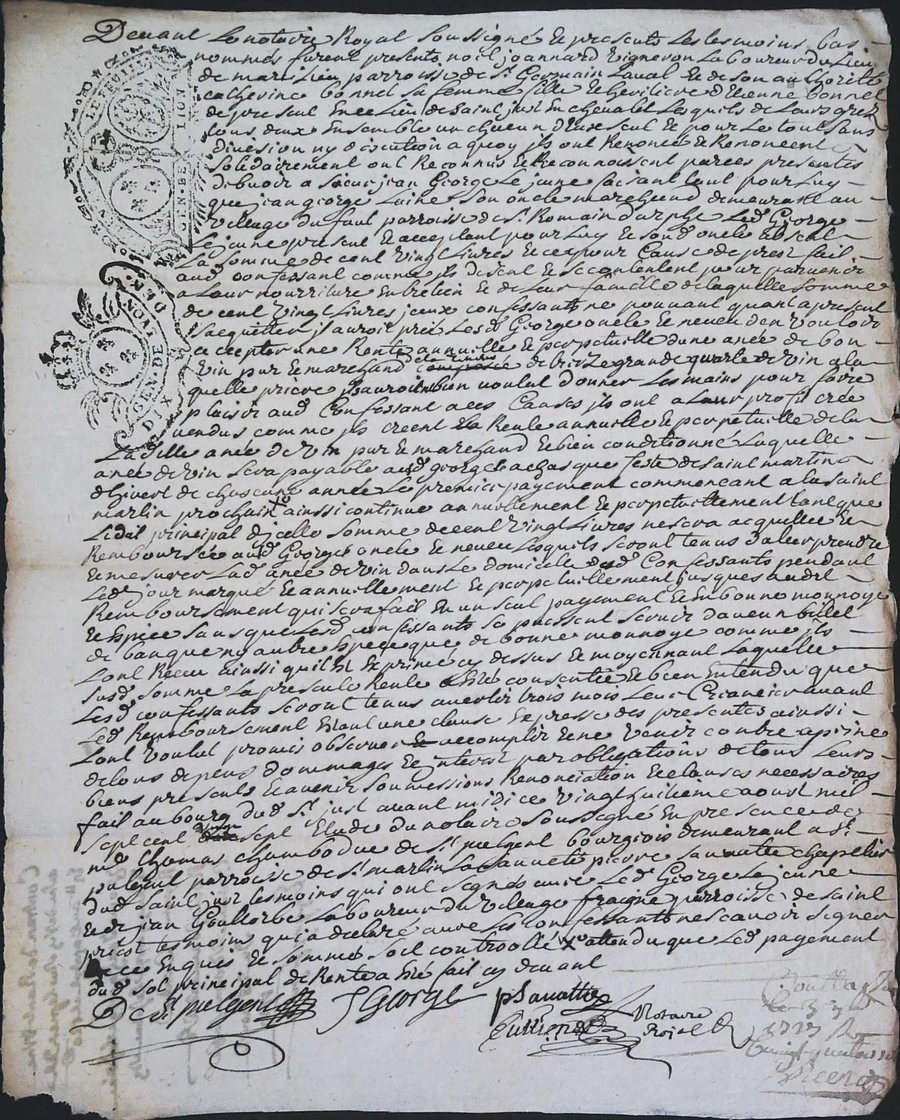 Devant Le notaire Royal Soussigné Et presents Les tesmoins bas
nommés furent presents noel joannard vigneron Laboureur du Lieu
de parroisse de St Germain Laval Et de son authorité
catherine bonnel sa femme fille Et heritiere d'Etienne bonnel
de present En ce Lieu de Saint just En chevalet Lesquels de Leurs grez
tous deux Ensemble un chacun d'Eux seul Et pour Le tout sans
division ny discution a quoy ils ont Renoncé Et Renoncent
Solidairement ont Reconnus Et Reconnoissent par ces presentes
debvoir a Sieur jean George Le jeune faisant tant pour Luy
que jean george Laine son oncle marchand demeurant au
village du faut parroisse de St Romain durphe Led George
Le jeune present Et acceptant pour Luy Et sond oncle absent
La somme de cent vingt Livres Et ce pour Cause de prest fait
aud confessant comme ils disent Et se contentent pour parvenir
a Leur nourriture Entretien Et de Leur famille de laquelle somme
de cent vingt Livres jceux confessants ne pouvant quant a present
sacquitter ils auroit prié Les d George oncle Et neveu den vouloir
accepter une Rente annuelle Et perpetuelle dune anée de bon
vin pur Et marchand de treize grande quarte de vin a la
quelle priere ils auroient bien voulut donner Les mains pour faire
plaisir aud Confessant a ces Causes ils ont a Leur profit creé
vendus comme ils creent La Rente annuelle Et perpetuelle de la
La ditte anée de vin pur Et marchand Et bien conditionné Laquelle
anée de vin sera payable aud george a chasque feste de saint martin
dhivert de chascune année Le premier payement commencant a la saint
martin prochain ainsi continué annuellement Et perpetuellement tant que
Ledit principal Et jcelle somme de cent vingt Livres ne sera acquittée Et
Remboursée aud George oncle Et neveu Lesquels seront tenus daler prendre
Et mesurer Lad anée de vin dans Le domicille dud Confessants pendant
Led jour marqué Et annuellement Et perpetuellement jusques audit
Remboursement qui sera fait En un seul payement Et En bonne monnoye
Et Espece sans que Lesd confessants se puissent servir daucun billet
de banque ny autre Espece que de bonne monnoye comme ils
Lont Receu ainsi quil Est Exprimé cy dessus Et moyennant Laquelle
susd somme La presente Rente Esté consentie Et bien Entendu que
Lesd confessants seront tenus avertir trois mois Leur Creancier avant
Led Remboursement Estant une clause Expresse des presentes ainsi
Lont voulut promis observer Et accomplir Et ne venir contre a peine
de tous depens dommages Et interest par obligations de tous Leurs
biens presents Et avenir soumissions Renonciation Et clauses necessaires
fait au bourg dud St just avant midi ce vingt huitieme aoust mil
sept cent vingt sept Etude du notaire soussigné En presence de
mr thomas chambodue de St pulgent bourgeois demeurant a St
pulgent parroisse de St martin La sauveté pierre sauvatte chapellier
dud Saint just tesmoins qui ont signés avec Led George Le jeune
Et jean Laboureur du village fraigne parroisse de saint
priest tesmoins qui a declaré avec Les confessants ne scavoir signer
de ce Enquis Et Sommé soit controollé attendu que Led payement
dud sol principal de Rente a Esté fait cy devant
De St pulgent J George pSauvatte
Notaire
Royal